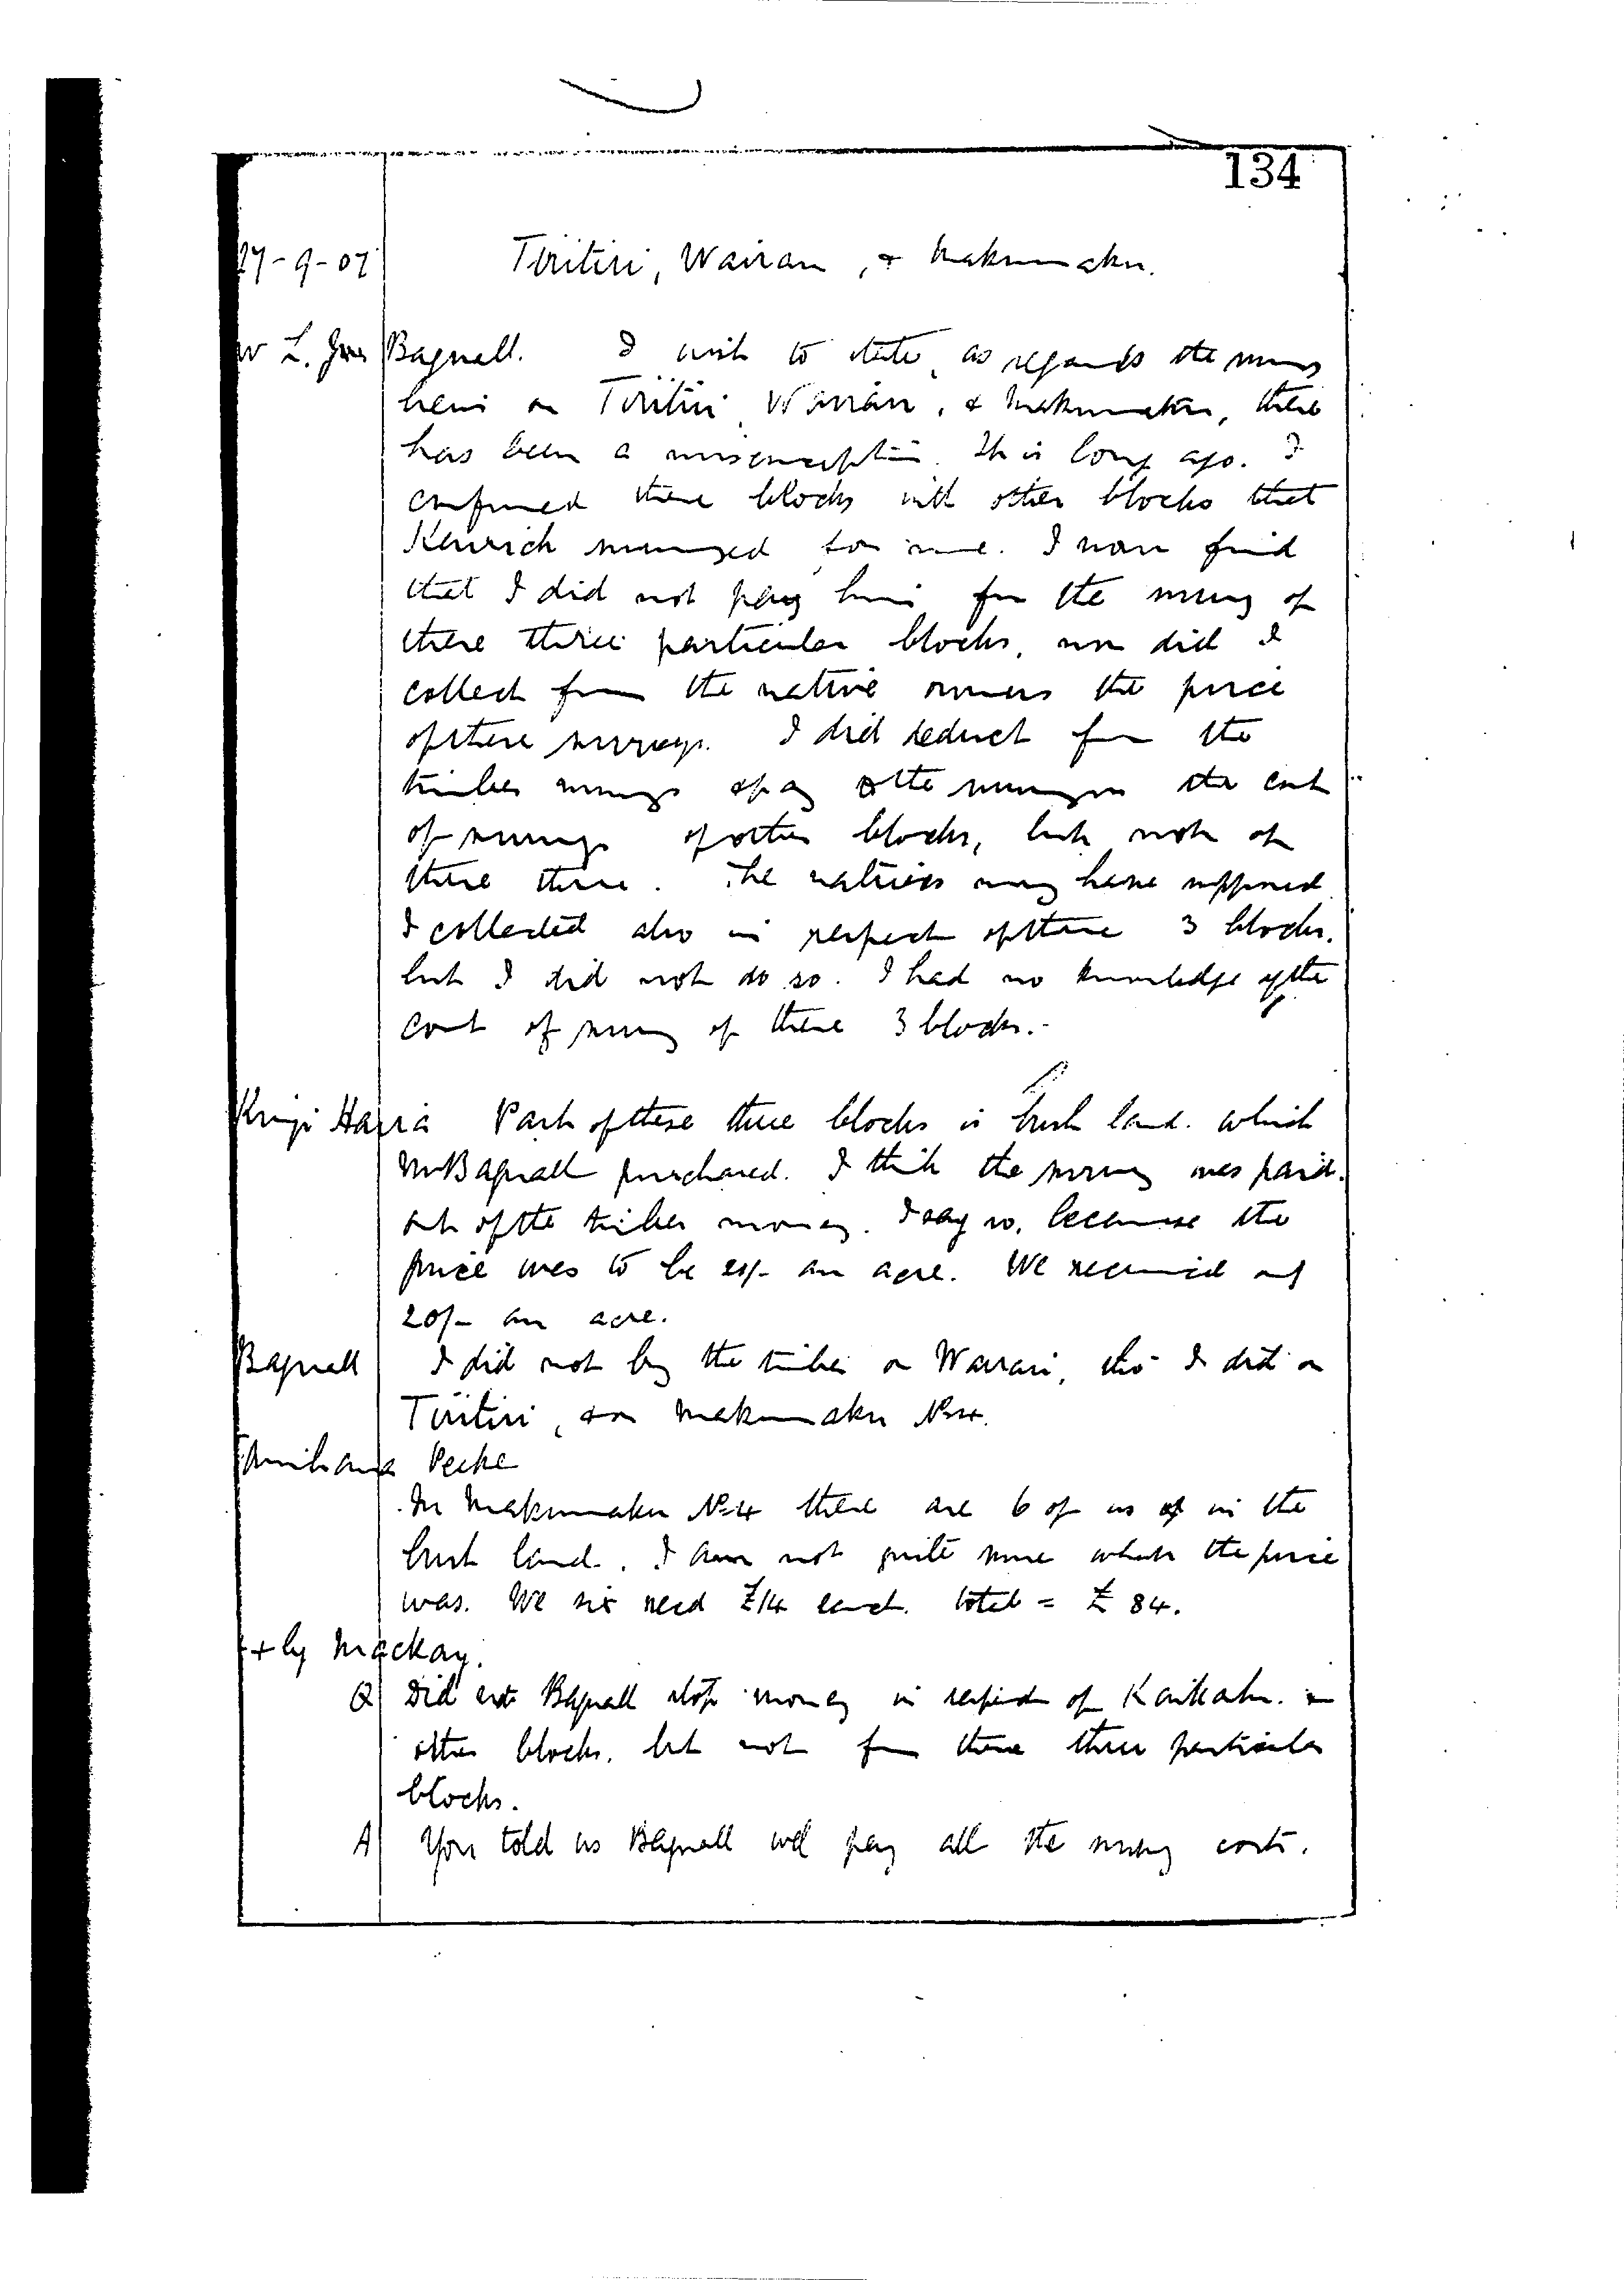 134
27-9-07 Tiritiri, Wairau, & Makumaku.
Bagnall. I wish to state, as regards the survey
liens on Tiritiri, Wairau, & Makumaku, there
has been a misconception. It is long ago. I
confused these blocks with other blocks that
Kenrick surveyed for me. I now find
that I did not pay him for the survey of
these three particular blocks, nor did I
collect from the native owners the price
of these surveys. I did deduct from the
timber moneys the cost
of surveys of other blocks, but not of
these three. The natives may have supposed
I collected also in respect of these 3 blocks,
but I did not do so. I had no knowledge of the
cost of survey of these 3 blocks.-
Haria Part of these three blocks is bush land which
Mr Bagnall purchased. I think the survey was paid
out of the timber money. I say so, because the
price was to be 25/- an acre. We received only
20/- an acre.
Bagnall I did not buy the timber on Wairau, tho' I did on
Tiritiri, & on Makumaku No 4.
Peeke
In Makumaku No 4 there are 6 of us in the
bush land. I am not quite sure what the price
was. We six recd £14 each. total = £84.
X by Mackay.
Q Did not Bagnall stop money in respect of
other blocks, but not from these three particular
blocks.
A You told us Bagnall wd pay all the survey costs.